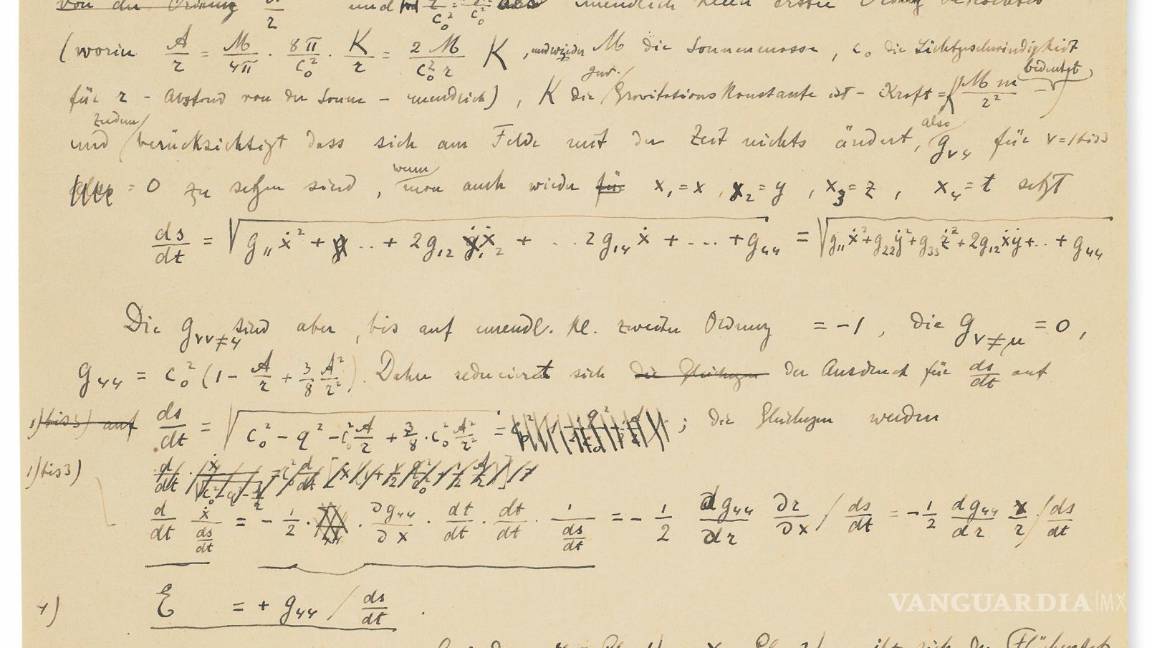 von der Ordnung
(worin A/2 = M/4π · 8π/c₀² · K/2 = 2M/c₀²r K, M die Sonnenmasse, c₀ die Lichtgeschwindigkeit
für r - Abstand von der Sonne - unendlich), K die Gravitationskonstante ist - Kraft = (M m/r² -) bedeutet
und zudem berücksichtigt dass sich am Felde mit der Zeit nichts ändert, also g_ν4 für ν=1bis3
= 0 zu setzen sind, wenn man auch wieder für x₁ = x, x₂ = y, x₃ = z, x₄ = t setzt
ds/dt = √(g₁₁ẋ² + .. + 2g₁₂ẋ + .. 2g₁₄ẋ + ... + g₄₄) = √(g₁₁ẋ²+g₂₂ẏ²+g₃₃ż²+2g₁₂ẋẏ+..+g₄₄)
Die g_νν≠4 sind aber, bis auf unendl. kl. zweiter Ordnung = -1, die g_ν≠μ = 0,
g₄₄ = c₀²(1 - A/r + 3/8 A²/r²). Daher reduciret sich die Gleichungen der Ausdruck für ds/dt auf
1) bis 3) auf ds/dt = √(c₀² - q² - c₀² A/r + 3/8 · c₀² A²/r²) = ; die Gleichungen werden
1) bis 3)
d/dt ẋ/(ds/dt) = -1/2 · ∂g₄₄/∂x · dt/dt · dt/dt · 1/(ds/dt) = -1/2 dg₄₄/dr ∂r/∂x / ds/dt = -1/2 dg₄₄/dr x/r / ds/dt
4) E = + g₄₄ / ds/dt .
VANGUARDIA|MX